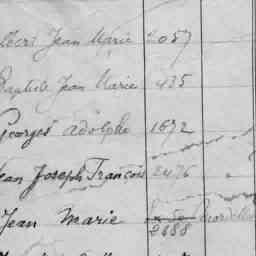 Jean Marie 2057
Baptiste Jean Marie 435
Georges Adolphe 1672
Jean Joseph François 2476
Jean Marie 2688